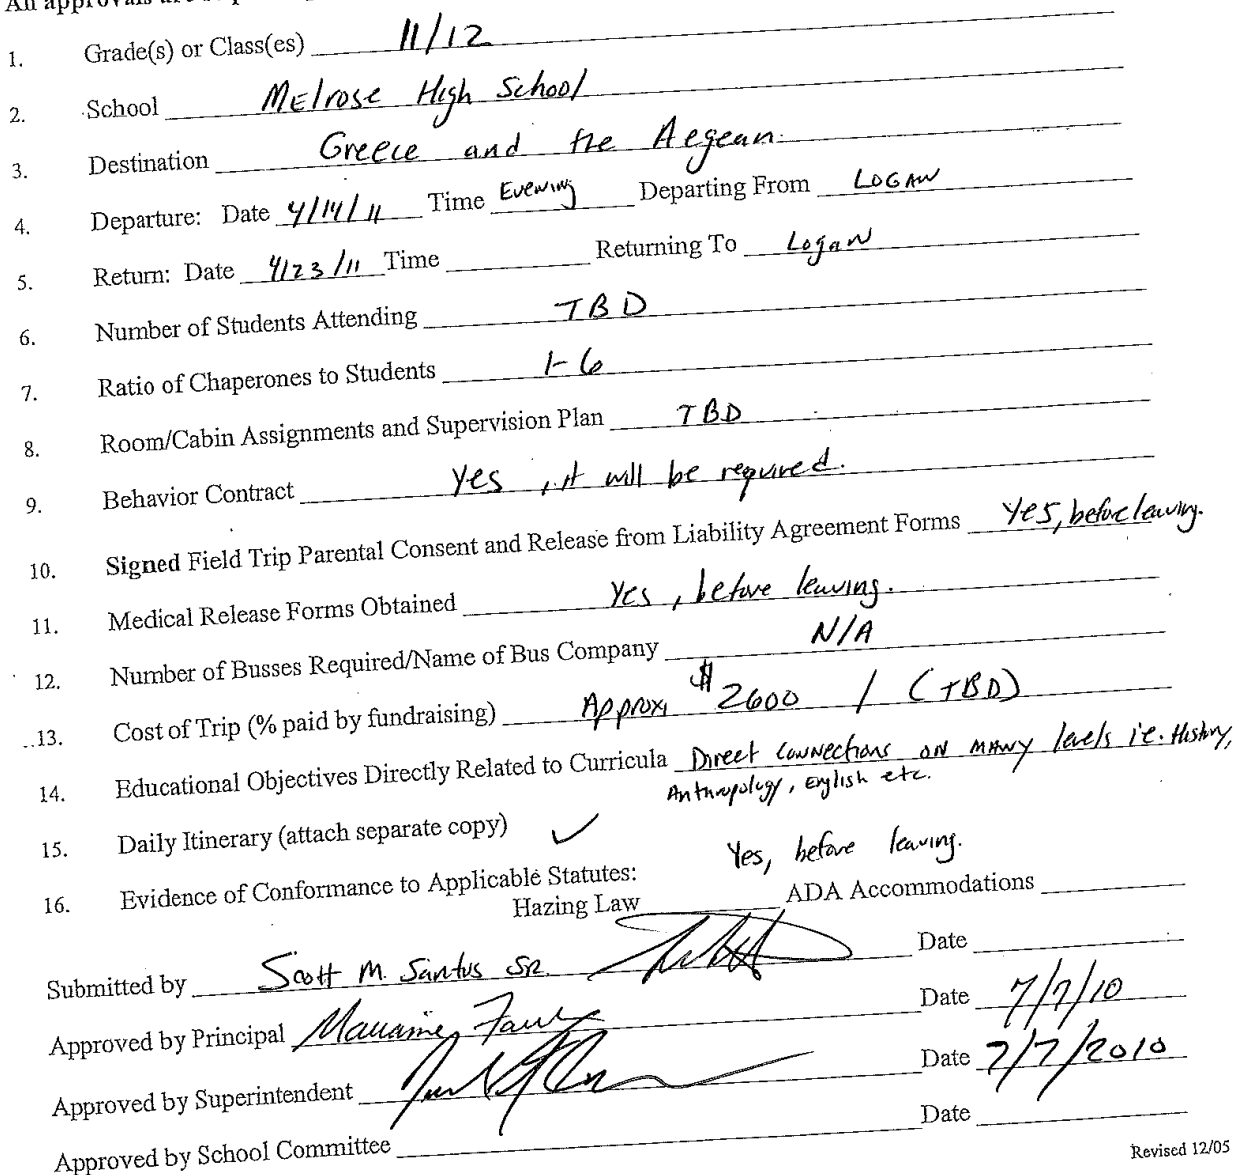 All approvals are
1. Grade(s) or Class(es) 11/12
2. School Melrose High School
3. Destination Greece and the Aegean
4. Departure: Date 4/14/11 Time Evening Departing From LOGAN
5. Return: Date 4/23/11 Time Returning To Logan
6. Number of Students Attending TBD
7. Ratio of Chaperones to Students 1-6
8. Room/Cabin Assignments and Supervision Plan TBD
9. Behavior Contract Yes, it will be required.
10. Signed Field Trip Parental Consent and Release from Liability Agreement Forms Yes, before leaving.
11. Medical Release Forms Obtained Yes, before leaving.
12. Number of Busses Required/Name of Bus Company N/A
13. Cost of Trip (% paid by fundraising) Approx $2600 / (TBD)
14. Educational Objectives Directly Related to Curricula Direct Connections on many levels i.e. History,
Anthropology, English etc.
15. Daily Itinerary (attach separate copy) ✓
16. Evidence of Conformance to Applicable Statutes: Yes, before leaving.
Hazing Law ADA Accommodations
Submitted by Scott M. Santos Sr. Date
Approved by Principal Date 7/7/10
Approved by Superintendent Date 7/7/2010
Approved by School Committee Date
Revised 12/05